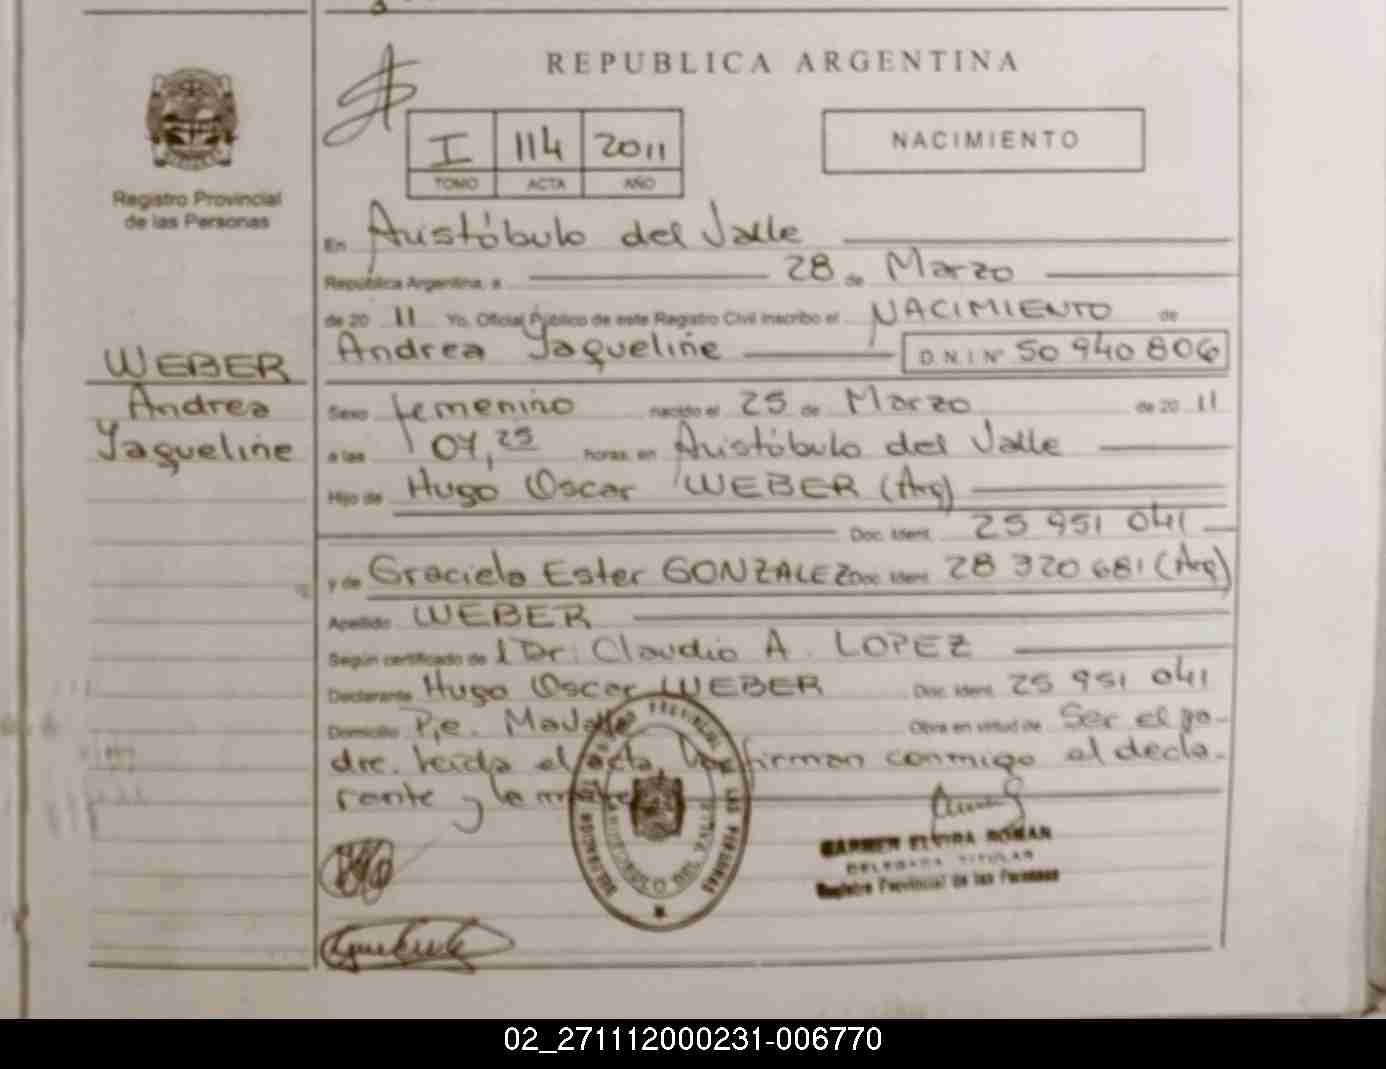 REPUBLICA ARGENTINA
I 114 2011
TOMO ACTA AÑO
NACIMIENTO
Registro Provincial
de las Personas
WEBER
Andrea
Yaqueline
En Aristóbulo del Valle
República Argentina, a 28 de Marzo
de 20 11 Yo, Oficial Público de este Registro Civil inscribo el NACIMIENTO de
Andrea Yaqueline D.N.I Nº 50 940 806
Sexo femenino nacido el 25 de Marzo de 20 11
a las 04,25 horas, en Aristóbulo del Valle
Hijo de Hugo Oscar WEBER (Arg)
Doc. Ident. 25 951 041
y de Graciela Ester GONZALEZ Doc. Ident. 28 320 681 (Arg)
Apellido WEBER
Según certificado de Dr. Claudio A. LOPEZ
Declarante Hugo Oscar WEBER Doc. Ident. 25 951 041
Domicilio Obra en virtud de Ser el pa-
dre. leida el acta firman conmigo el decla-
rante y la madre
CARMEN ELVIRA ROMAN
DELEGADA TITULAR
Registro Provincial de las Personas
02_271112000231-006770